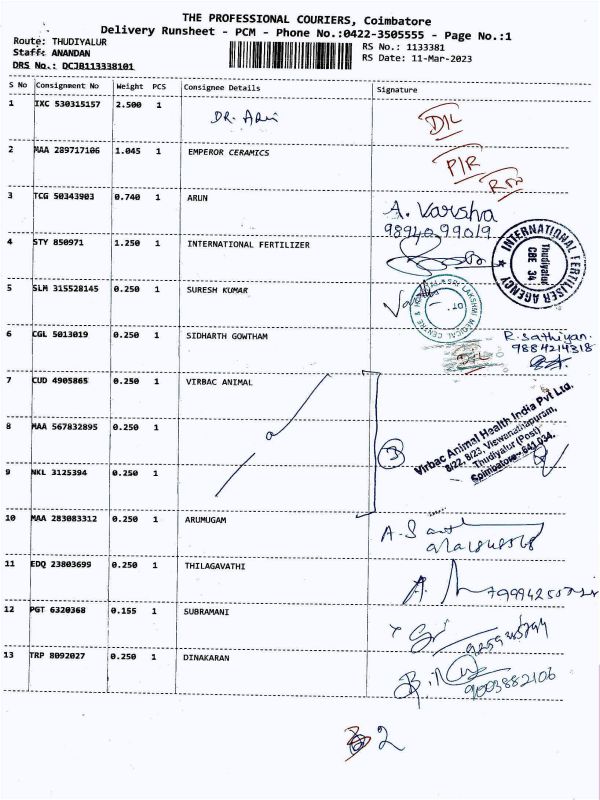 THE PROFESSIONAL COURIERS, Coimbatore
Delivery Runsheet - PCM - Phone No.:0422-3505555 - Page No.:1
Route: THUDIYALUR
RS No.: 1133381
Staff: ANANDAN
RS Date: 11-Mar-2023
DRS No.: DCJB113338101
S No Consignment No Weight PCS Consignee Details Signature
1 IXC 530315157 2.500 1 DR. ARUN D/L
2 MAA 289717106 1.045 1 EMPEROR CERAMICS P/R
3 TCG 50343903 0.740 1 ARUN A. Varsha
9894099019
4 STY 850971 1.250 1 INTERNATIONAL FERTILIZER
INTERNATIONAL FERTILISER AGENCY
Thudiyalur
CBE 34
5 SLM 315528145 0.250 1 SURESH KUMAR
LAKSHMI MEDICAL CENTRE &
6 CGL 5013019 0.250 1 SIDHARTH GOWTHAM R. Sathiyan.
9884214318
D/L
7 CUD 4905865 0.250 1 VIRBAC ANIMAL
8 MAA 567832895 0.250 1
3
Virbac Animal Health India Pvt Ltd.
8/22, 8/23, Viswanathapuram,
Thudiyalur (Post)
Coimbatore - 641 034.
9 NKL 3125394 0.250 1
10 MAA 283083312 0.250 1 ARUMUGAM
11 EDQ 23803699 0.250 1 THILAGAVATHI
12 PGT 6320368 0.155 1 SUBRAMANI
13 TRP 8092027 0.250 1 DINAKARAN
9003882106
2